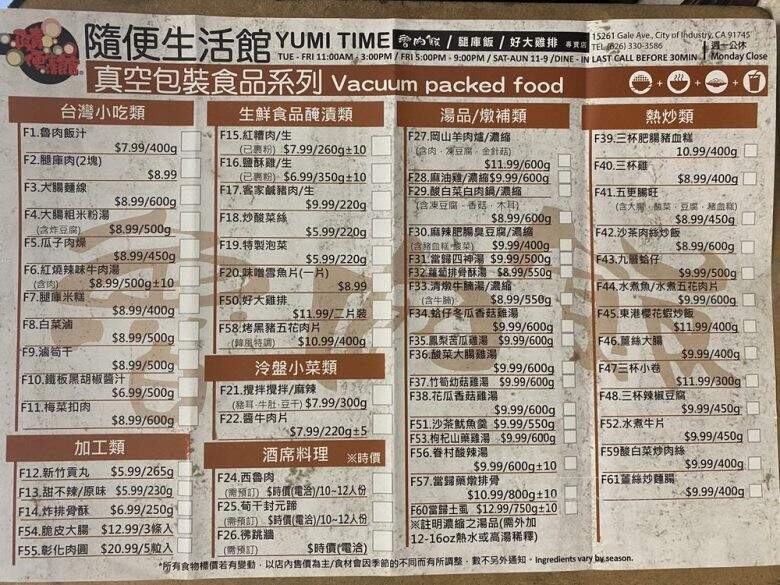 隨便生活館 YUMI TIME 魯肉飯 / 腿庫飯 / 好大雞排 專賣店
15261 Gale Ave., City of Industry, CA 91745
TEL (626) 330-3586
週一公休
TUE - FRI 11:00AM - 3:00PM / FRI 5:00PM - 9:00PM / SAT-AUN 11-9 /DINE - IN LAST CALL BEFORE 30MIN Monday Close
真空包裝食品系列 Vacuum packed food
台灣小吃類
F1.魯肉飯汁
$7.99/400g
F2.腿庫肉(2塊)
$8.99
F3.大腸麵線
$8.99/600g
F4.大腸粗米粉湯
(含炸豆腐) $8.99/500g
F5.瓜子肉燥
$8.99/450g
F6.紅燒辣味牛肉湯
(含肉) $8.99/500g±10
F7.腿庫米糕
$8.99/400g
F8.白菜滷
$8.99/500g
F9.滷筍干
$8.99/500g
F10.鐵板黑胡椒醬汁
$6.99/500g
F11.梅菜扣肉
$8.99/600g
加工類
F12.新竹貢丸 $5.99/265g
F13.甜不辣/原味 $5.99/230g
F14.炸排骨酥 $6.99/250g
F54.脆皮大腸 $12.99/3條入
F55.彰化肉圓 $20.99/5粒入
生鮮食品醃漬類
F15.紅糟肉/生
(已裹粉) $7.99/260g±10
F16.鹽酥雞/生
(已裹粉) $6.99/350g±10
F17.客家鹹豬肉/生
$9.99/220g
F18.炒酸菜絲
$5.99/220g
F19.特製泡菜
$5.99/220g
F20.味噌雪魚片(一片)
$8.99
F50.好大雞排
$11.99/二片裝
F58.烤黑豬五花肉片
(韓風特調) $10.99/400g
冷盤小菜類
F21.攪拌攪拌/麻辣
(豬耳·牛肚·豆干) $7.99/300g
F22.醬牛肉片
$7.99/220g±5
酒席料理 ※時價
F24.西魯肉
(需預訂) $時價(電洽)/10~12人份
F25.筍干封元蹄
(需預訂) $時價(電洽)/10~12人份
F26.佛跳牆
(需預訂) $時價(電洽)
湯品/燉補類
F27.岡山羊肉爐/濃縮
(含肉·凍豆腐·金針菇)
$11.99/600g
F28.麻油雞/濃縮$9.99/600g
F29.酸白菜白肉鍋/濃縮
(含凍豆腐·香菇·木耳)
$8.99/600g
F30.麻辣肥腸臭豆腐/濃縮
(含豬血糕·酸菜) $9.99/400g
F31.當歸四神湯 $9.99/500g
F32.蘿蔔排骨酥湯 $8.99/550g
F33.清燉牛腩湯/濃縮
(含牛腩) $8.99/550g
F34.蛤仔冬瓜香菇雞湯
$9.99/600g
F35.鳳梨苦瓜雞湯 $9.99/600g
F36.酸菜大腸雞湯
$9.99/600g
F37.竹筍幼菇雞湯 $9.99/600g
F38.花瓜香菇雞湯
$9.99/600g
F51.沙茶魷魚羹 $9.99/550g
F53.枸杞山藥雞湯 $9.99/600g
F56.眷村酸辣湯
$9.99/600g±10
F57.當歸藥燉排骨
$10.99/800g±10
F60當歸土虱 $12.99/750g±10
※註明濃縮之湯品(需外加
12-16oz熱水或高湯稀釋)
熱炒類
F39.三杯肥腸豬血糕
10.99/400g
F40.三杯雞
$8.99/400g
F41.五更腸旺
(含大腸·酸菜·豆腐·豬血糕)
$8.99/450g
F42.沙茶肉絲炒飯
$8.99/600g
F43.九層蛤仔
$9.99/500g
F44.水煮魚/水煮五花肉片
$9.99/600g
F45.東港櫻花蝦炒飯
$11.99/400g
F46.薑絲大腸
$9.99/400g
F47三杯小卷
$11.99/300g
F48.三杯辣椒豆腐
$9.99/450g
F52.水煮牛片
$9.99/450g
F59酸白菜炒肉絲
$9.99/400g
F61薑絲炒麵腸
$9.99/400g
*所有食物標價若有變動，以店內售價為主/食材會因季節的不同而有所調整，數不另外通知·Ingredients vary by season.